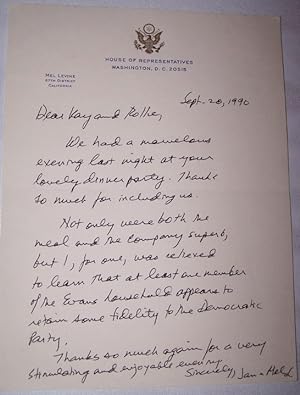 HOUSE OF REPRESENTATIVES
WASHINGTON, D. C. 20515
MEL LEVINE
27TH DISTRICT
CALIFORNIA
Sept. 20, 1990
Dear Kay and Rollie,
We had a marvelous
evening last night at your
lovely dinner party. Thanks
so much for including us.
Not only were both the
meal and the company superb,
but I, for one, was relieved
to learn that at least one member
of the Evans household appears to
retain some fidelity to the Democratic
Party.
Thanks so much again for a very
stimulating and enjoyable evening.
Sincerely, Jan + Mel